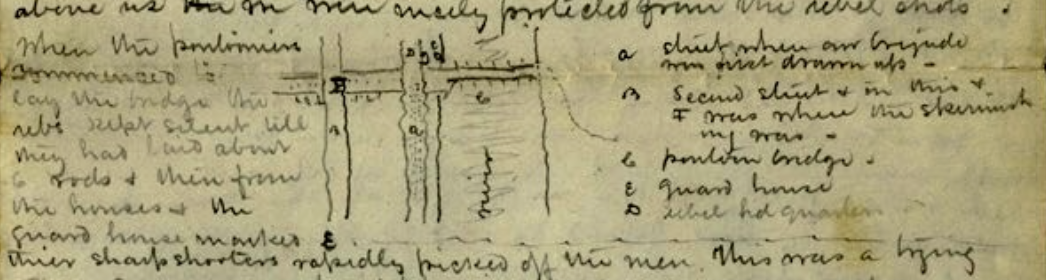 above us the m men nicely protected from the rebel shots.
When the pontoniers
commenced to
lay the bridge the
rebs kept silent till
they had laid about
6 rods & then from
the houses & the
guard house marked E
thier sharpshooters rapidly picked off the men. This was a trying
river
a street where our brigade
was first drawn up -
B Second street & in this &
F was where the skirmish
ing was -
C pontoon bridge -
E guard house
D rebel hd quarters